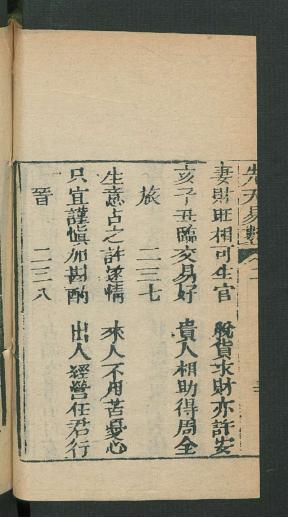 先天易數 卷二
妻財旺相可生官 脫貨求財亦許安
亥子丑臨交易好 貴人相助得周全
旅 二三七
生意占之許遂情 來人不用苦憂心
只宜謹慎加斟酌 出入經營任君行
晉 二三八